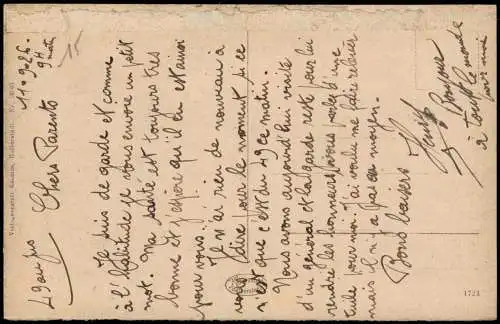 11-9-26.
9H matin
15
49 au jus
Chers Parents
Je suis de garde et comme
à l'habitude je vous envoie un petit
mot. Ma santé est toujours très
bonne et j'espère qu'il en est
pour vous.
Il n'ai rien de nouveau à
vous dire pour le moment si ce
n'est que c'est du 49 ce matin.
Nous avons aujourd'hui visite
d'un general et la garde reste pour lui
rendre les honneurs vous parlez d'une
tuile pour moi. J'ai voulu me faire relever
mais il n'y a pas eu moyen.
Bons baisers
Bonjour
à tout le monde
pour moi
1723